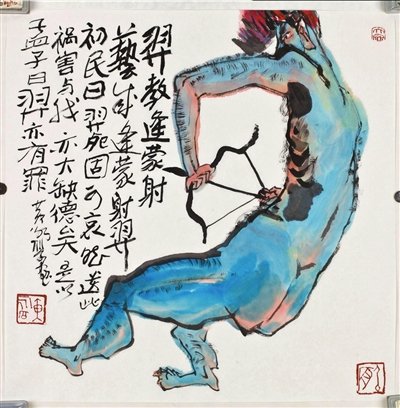 羿教逢蒙射
藝成逢蒙射羿
初民曰羿死固可哀然造此
禍害与伐亦大缺德矣是以
孟子曰羿亦有罪 黄永